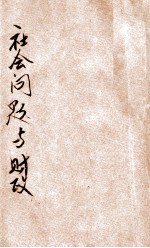 社会问题与财政